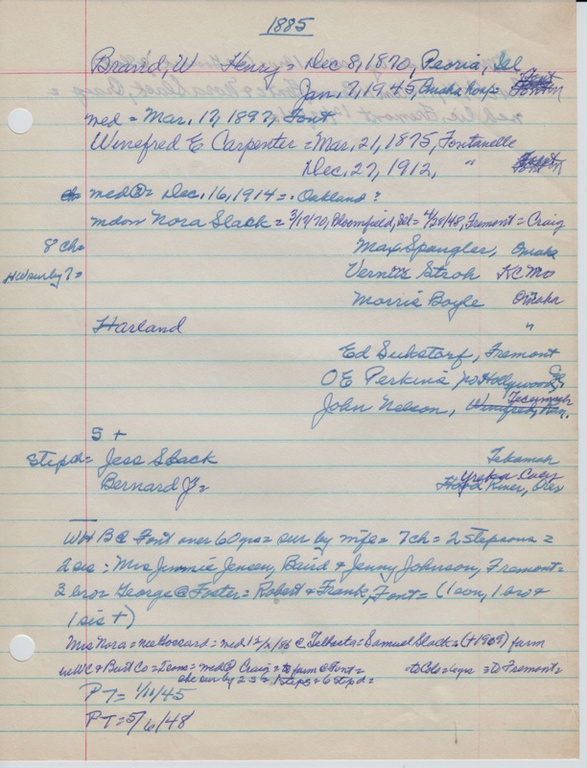 1885
Brand, W Henry = Dec 8, 1870, Peoria, Ill
Jan. 7, 1945, Omaha Hosp =
med = Mar. 17, 1897, Font
Winefred E Carpenter = Mar. 21, 1875, Fontanelle
Dec. 27, 1912, "
med @ = Dec. 16, 1914 = . Oakland ?
mdow Nora Slack = 3/17/70, Bloomfield, = 4/28/48, Fremont = Craig
8 Ch = Max Spangler, Omaha
HW sur by 7 = Vernitz Stroh KC Mo
Morris Boyle Omaha
Harland "
Ed Sukstorf, Fremont
OE Perkins Hollywood, Cal
John Nelson, Tecumseh
5 +
Step ch = Jess Slack Tekamah
Bernard J = Yreka Caly
Hood River, Ore
WHB @ Font over 60 yrs = sur by wife = 7 ch = 2 stepsons =
2 sis : Mrs Jimmie Jensen, Baird & Jenny Johnson, Fremont =
3 bros George @ Foster = Robert & Frank, Font = (1 son, 1 bro &
1 sis +)
Mrs Nora = nee = med 12/2/86 @ Tilbasta = Samuel Slack = (+1909) farm
in WC & Burt Co = = med @ Craig = to farm @ Font = to Colo = 6 yrs = to Fremont =
she sur by 2 s = 1 step s = 6 step d =
PT = 1/11/45
PT = 5/6/48